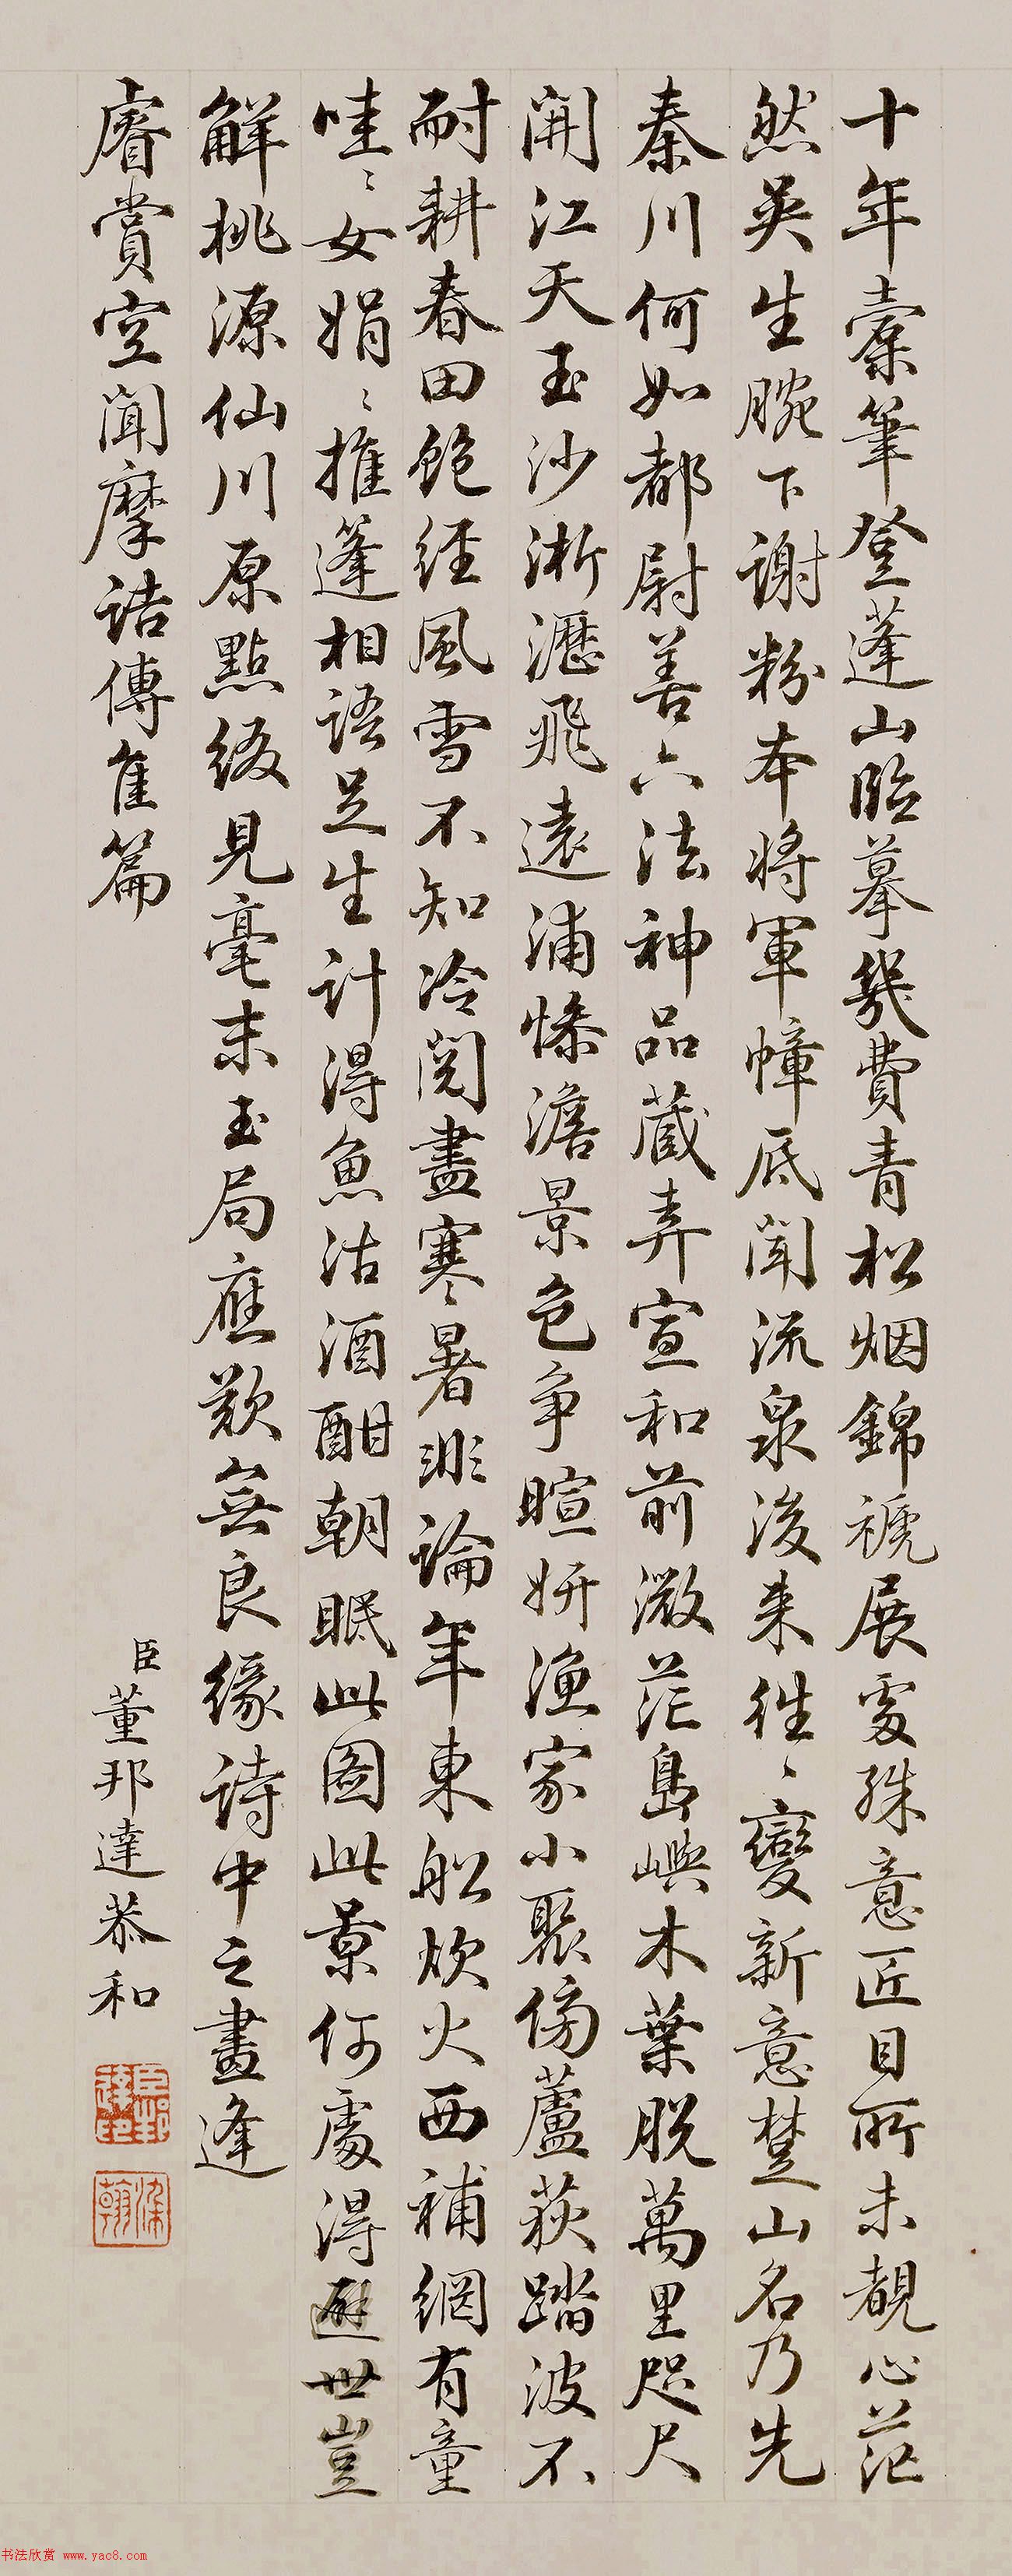 十年橐筆登蓬山臨摹幾費青松烟錦褫展處殊意匠目所未覩心茫
然吳生腕下謝粉本將軍幛底聞流泉後来往〻變新意楚山名乃先
秦川何如都尉善六法神品藏弆宣和前微茫島嶼木葉脱萬里咫尺
開江天玉沙淅瀝飛遠浦慘澹景色爭暄妍漁家小聚傍蘆荻踏波不
耐耕春田飽經風雪不知冷閱盡寒暑非論年東船炊火西補網有童
哇〻女娟〻推篷相語足生計得魚沽酒酣朝眠此圖此景何處得避世豈
解桃源仙川原點綴見毫末玉局應歎無良緣詩中之畫逢
睿賞空聞摩詰傳隹篇
臣董邦達恭和
臣邦達印
染翰
书法欣赏 www.yac8.com